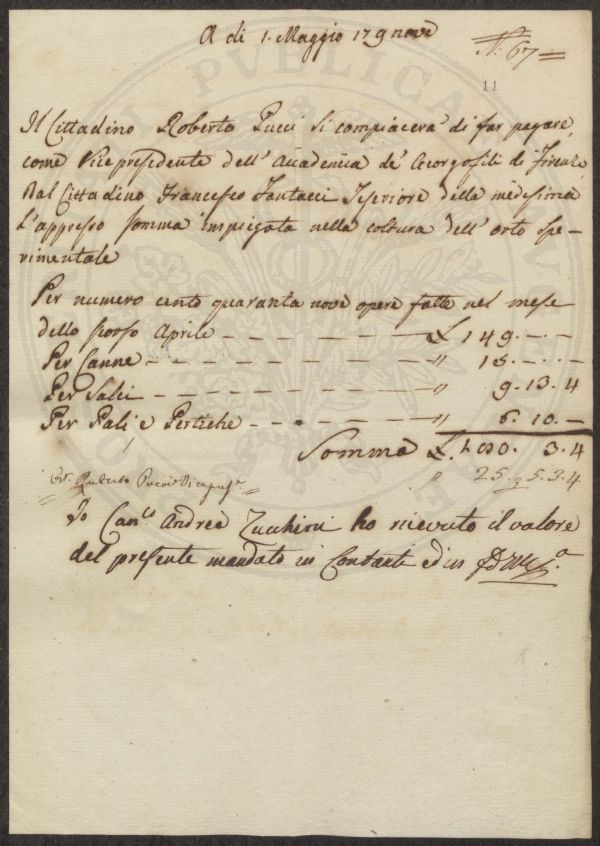 A di 1. Maggio 179nove
N: 67
11
Il Cittadino Roberto Pucci si compiacerà di far pagare,
come Vicepresidente dell' Accademia de' Georgofili di Firenze
Dal Cittadino Francesco Tantacci Tesoriere della medesima
l'appresso somma impiegata nella coltura dell' orto spe-
rimentale
Per numero cento quaranta nove opere fatte nel mese
dello scorso Aprile £ 149. - . -
Per Canne " 15. - . -
Per Salci " 9. 13. 4
Per Pali, e Pertiche " 6. 10. -
Somma £. 180. 3. 4
" 25. 5. 3. 4
Roberto Pucci Vicepres.e
Io Can.co Andrea Zucchini ho ricevuto il valore
del presente mandato in Contanti